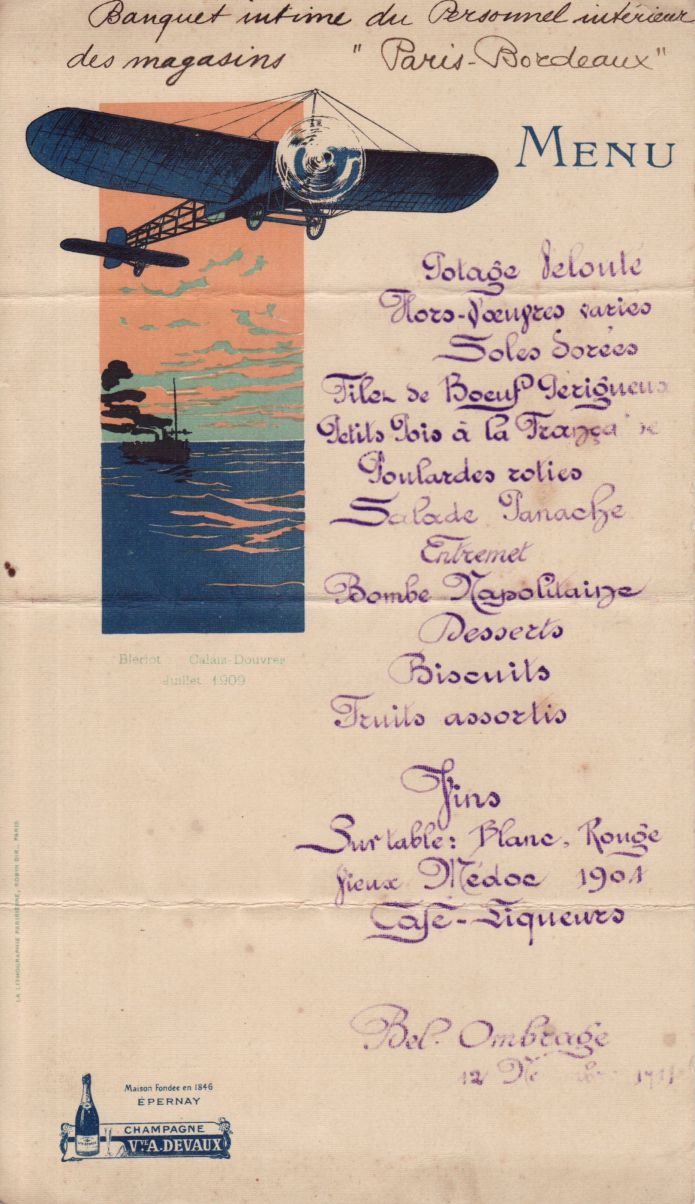 Banquet intime du Personnel intérieur
des magasins "Paris-Bordeaux"
MENU
Potage Velouté
Hors-d'œuvres variés
Soles Dorées
Filet de Boeuf Périgueux
Petits Pois à la
Poulardes roties
Salade Panache
Entremet
Bombe Napolitaine
Desserts
Biscuits
Fruits assortis
Vins
Sur table: Blanc, Rouge
Vieux Médoc 1904
Café-Liqueurs
Bel-Ombrage
12
Blériot Calais-Douvres
Juillet 1909
LA LITHOGRAPHIE PARISIENNE, ROBIN DIR., PARIS
Maison Fondée en 1846
ÉPERNAY
CHAMPAGNE
Vve A. DEVAUX